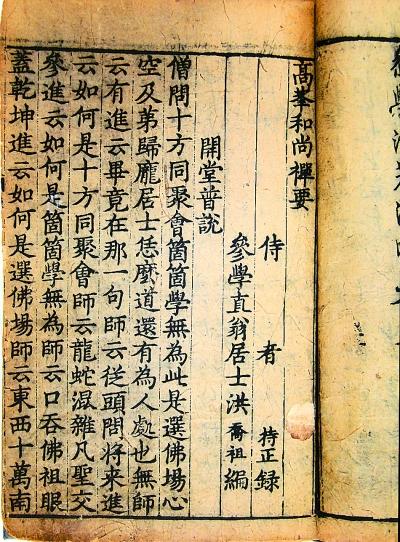 高峯和尚禪要
侍者持正録
參學直翁居士洪喬祖編
開堂普說
僧問十方同聚會箇箇學無為此是選佛塲心
空及弟歸龐居士恁麼道還有為人處也無師
云有進云畢竟在那一句師云從頭問將來進
云如何是十方同聚會師云龍蛇混雜凡聖交
參進云如何是箇箇學無為師云口吞佛祖眼
盖乾坤進云如何是選佛塲師云東西十萬南